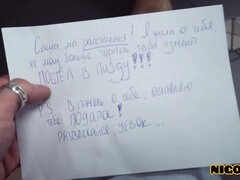 Саша, мы расстаемся! Я ушла от тебя,
не могу больше терпеть твои измены.
ПОШЁЛ В ПИЗДУ!!!
P.S. В память о себе, оставляю
тебе ПОДАРОК!
РАЗВЛЕКАЙСЯ, УЁБОК...
NIGO